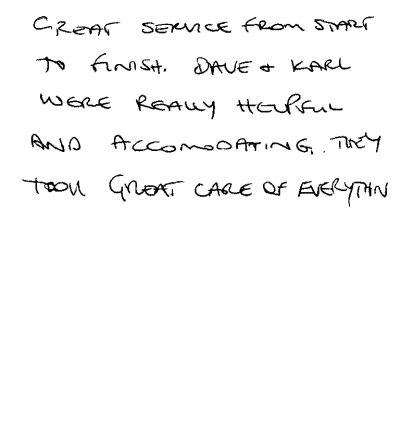 GREAT SERVICE FROM START
TO FINISH. DAVE & KARL
WERE REALLY HELPFUL
AND ACCOMODATING. THEY
TOOK GREAT CARE OF EVERYTHIN